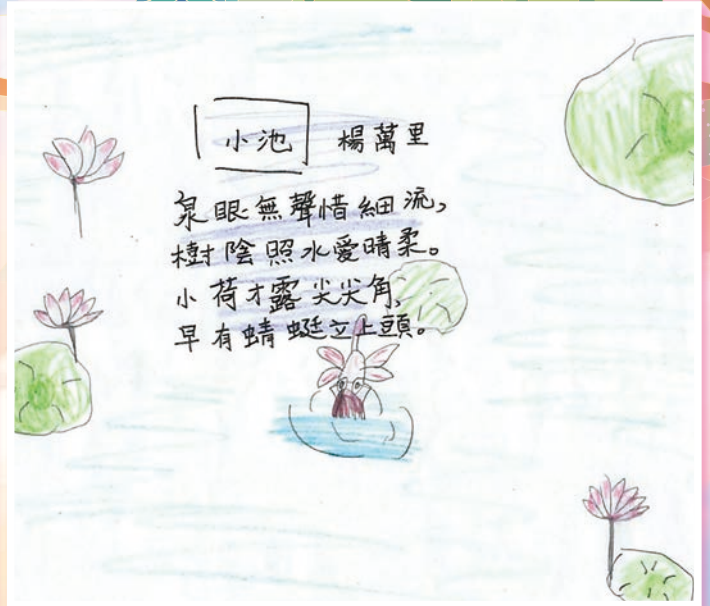 小池 楊萬里
泉眼無聲惜細流，
樹陰照水愛晴柔。
小荷才露尖尖角，
早有蜻蜓立上頭。